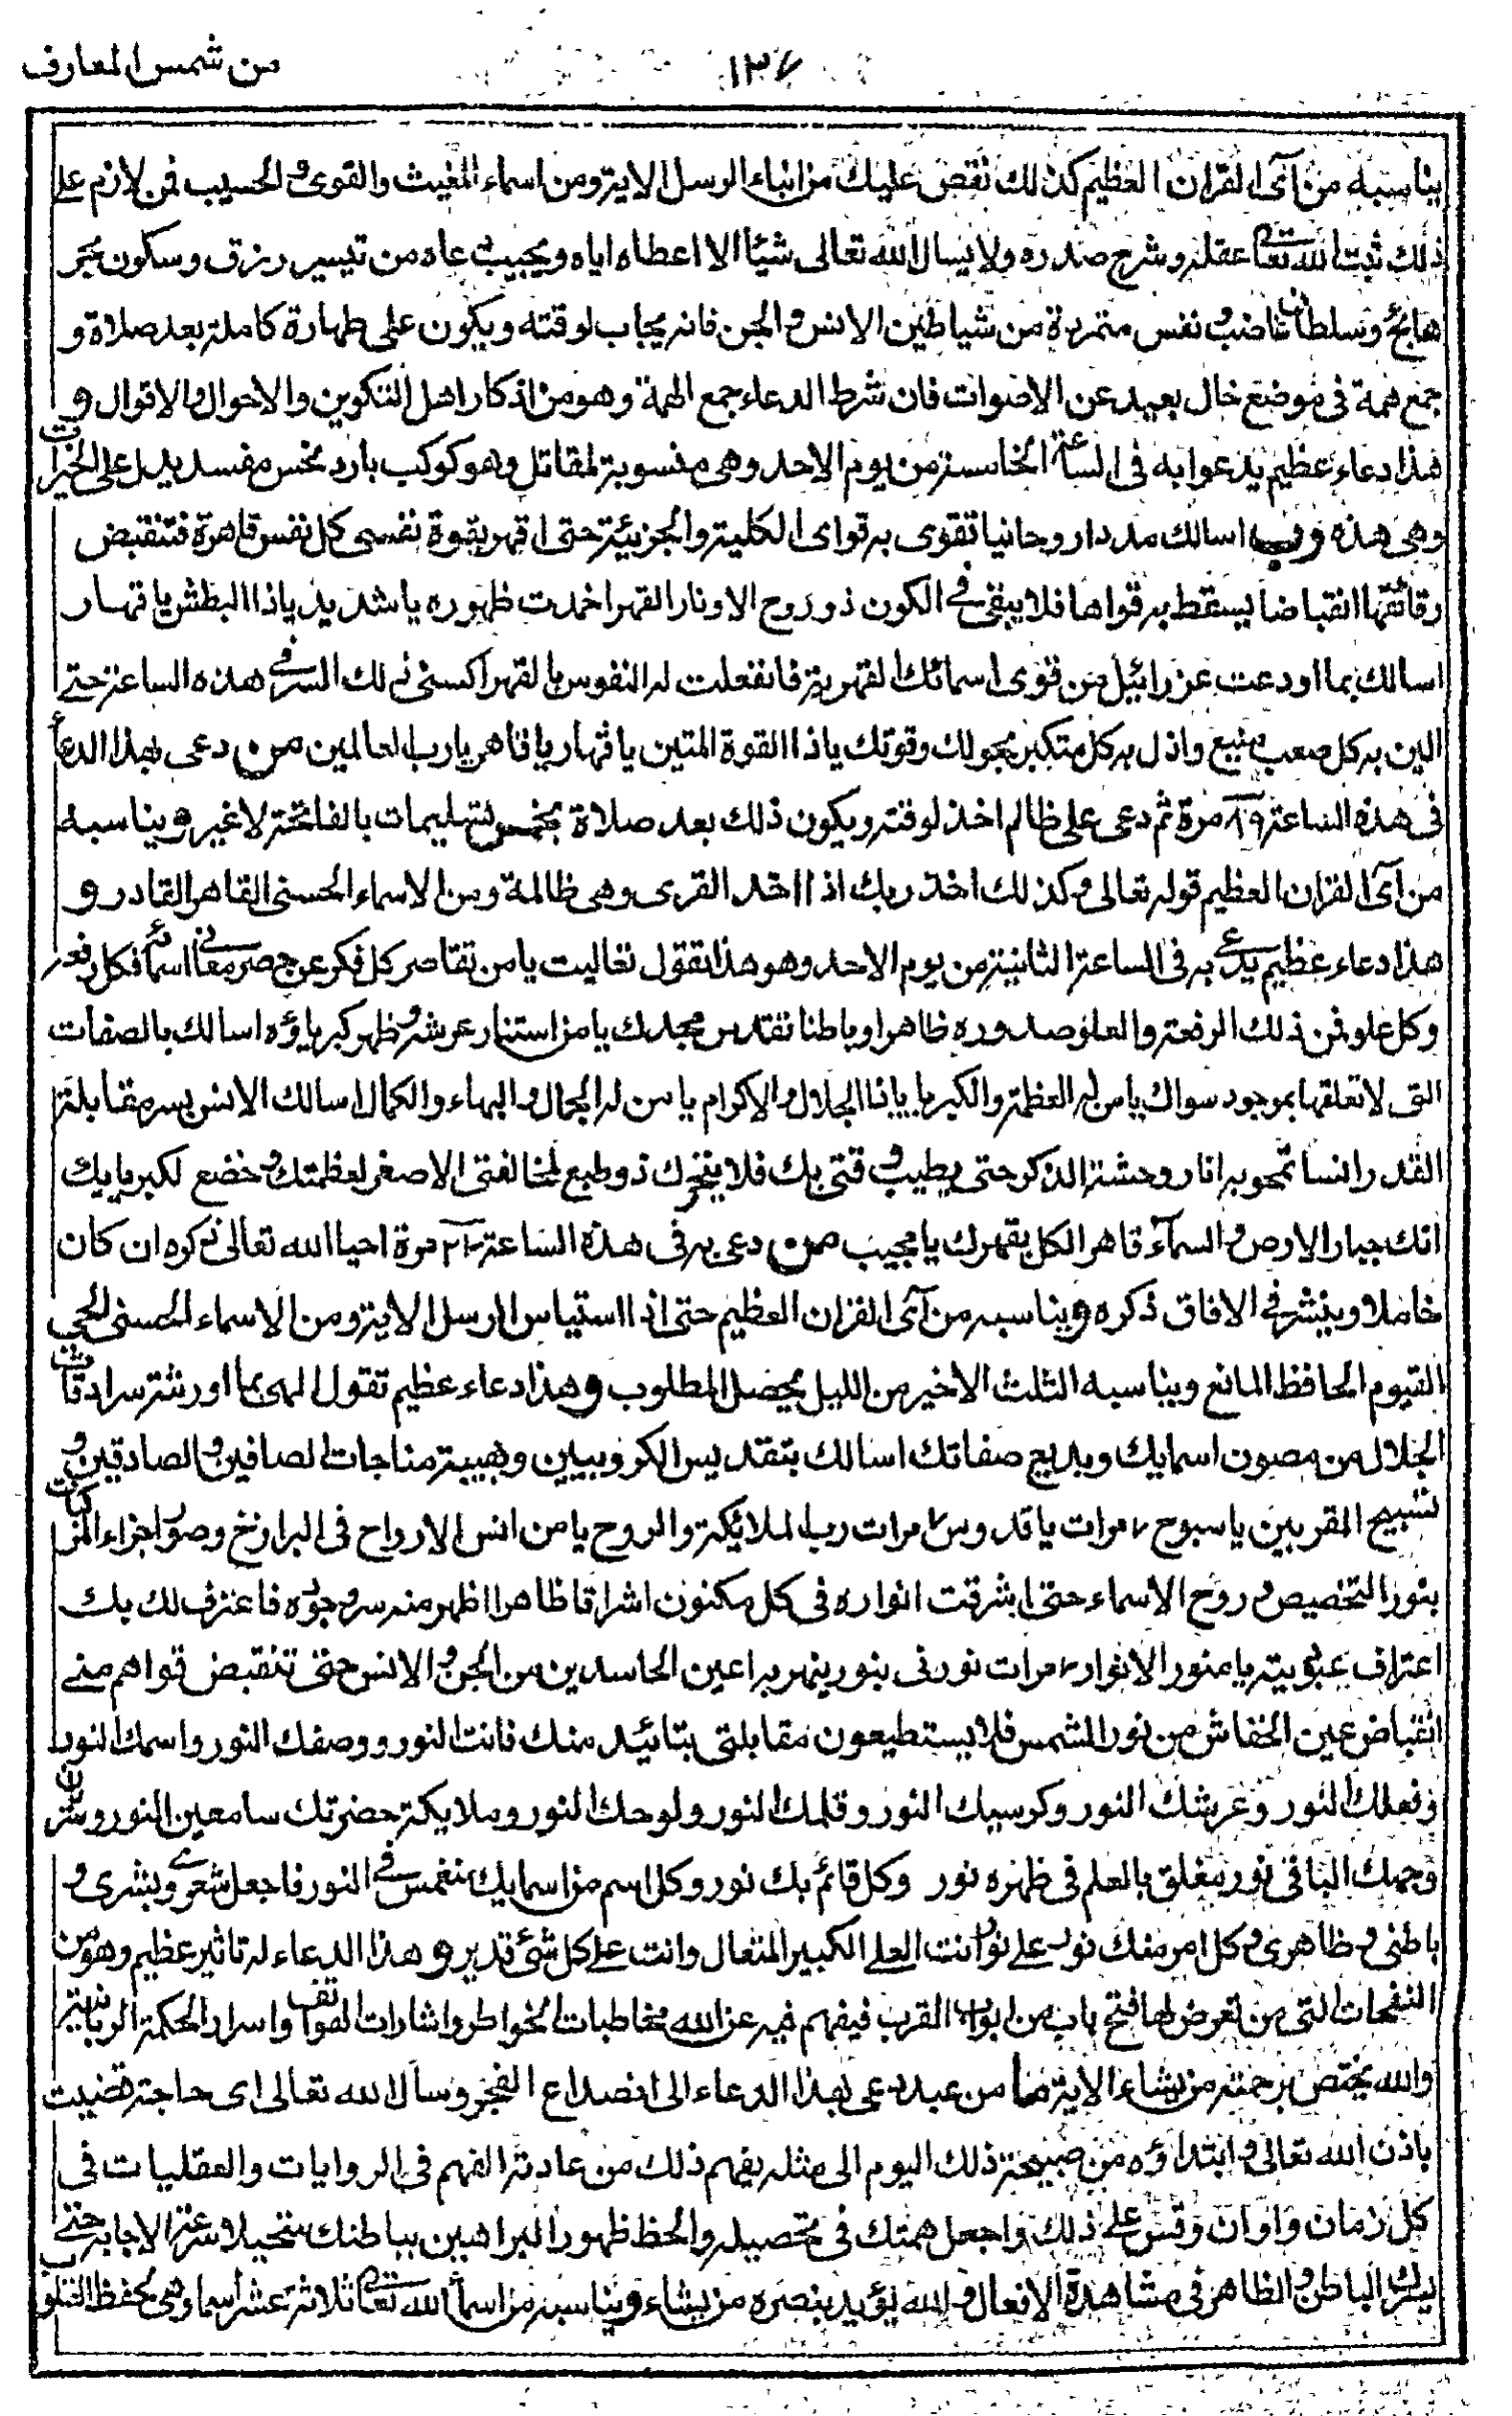 من شمس المعارف
١٣٧
يناسبه من آى القران العظيم كذلك نقص عليك من انباء الرسل الاية ومن اسماء المغيث والقوى و الحسيب فمن لازم على
ذلك ثبت الله تعالى عقله وشرح صدره ولا يسال الله تعالى شيئا الا اعطاه اياه ويجيب دعاه من تيسير رزق وسكون بحر
هايج وسلطان غاضب و نفس متمردة من شياطين الانس و الجن فانه يجاب لوقته ويكون على طهارة كاملة بعد صلاة و
جمع همة فى موضع خال بعيد عن الاصوات فان شرط الدعاء جمع الهمة وهو من اذكار اهل التكوين والاحوال والاقوال و
هذا دعاء عظيم يدعوا به فى الساعة الخامسة من يوم الاحد وهى منسوبة لمقاتل وهو كوكب بارد نحس مفسد يدل على الخيرات
وهى هذه رب اسالك مددا روحانيا تقوى به قواى الكلية والجزئية حتى اقهر بقوة نفسى كل نفس قاهرة فتنقبض
رقائقها انقباضا يسقط به قواها فلا يبقى فى الكون ذو روح الا ونار القهر اخمدت ظهوره يا شديد ياذا البطش يا قهار
اسالك بما اودعت عزرائيل من قوى اسمائك القهرية فانفعلت له النفوس بالقهر اكسنى ذلك السر فى هذه الساعة حتى
الين به كل صعب منيع واذل به كل متكبر بحولك وقوتك ياذا القوة المتين يا قهار يا قاهر يا رب العالمين من دعى بهذا الدعاء
فى هذه الساعة ٨٩ مرة ثم دعى على ظالم اخذ لوقته ويكون ذلك بعد صلاة بخمس تسليمات بالفاتحة لا غير و يناسبه
من آى القران العظيم قوله تعالى و كذلك اخذ ربك اذا اخذ القرى وهى ظالمة ومن الاسماء الحسنى القاهر القادر و
هذا دعاء عظيم يدعى به فى الساعة الثانية من يوم الاحد وهو هذا تقول تعاليت يا من تقاصر كل فكر عن حصر معانى اسمائه فكل رفعة
وكل علو فمن ذلك الرفعة والعلو صدوره ظاهرا وباطنا تقدس مجدك يا من استنار عرشه و ظهر كبرياؤه اسالك بالصفات
التى لا تعلقها بموجود سواك يا من له العظمة والكبريا ياذا الجلال و الاكرام يا من له الجمال و البهاء والكمال اسالك الانس بسر مقابلة
القدر انسا تمحو به اثار وحشة الذكر حتى يطيب وقتى بك فلا يتحرك ذو طبع لمخالفتى الا صغر لعظمتك و خضع لكبريايك
انك جبار الارض و السمآء قاهر الكل بقهرك يا مجيب من دعى به فى هذه الساعة مرة احيا الله تعالى ذكره ان كان
خاملا وينشر فى الافاق ذكره و يناسبه من آى القران العظيم حتى اذا استياس الرسل الاية ومن الاسماء الحسنى الحى
القيوم الحافظ المانع ويناسبه الثلث الاخير من الليل يحصل المطلوب و هذا دعاء عظيم تقول الهى بما اورثته سرادقات
الجلال من مصون اسمايك وبديع صفاتك اسالك بتقديس الكروبيين وهيبة مناجات الصافين و الصادقين و
تسبيح المقربين يا سبوح ٧ مرات يا قدوس ٧ مرات رب الملايكة والروح يا من انس الارواح فى البرازخ وصور اجزاء المركبات
بنور التخصيص و روح الاسماء حتى اشرقت انواره فى كل مكنون اشراقا ظاهرا اظهر منه سر وجوده فاعترف لك بك
اعتراف عبودية يا منور الانوار ٧ مرات نورنى بنور ينهر به اعين الحاسدين من الجن و الانس حتى تنقبض قواهم منى
انقباض عين الخفاش من نور الشمس فلا يستطيعون مقابلتى بتائيد منك فانت النور ووصفك النور واسمك النور
وفعلك النور وعرشك النور وكرسيك النور وقلمك النور ولوحك النور وملايكة حضرتك سامعين النور و
وجهك الباقى نور مغلق بالعلم فى ظهره نور وكل قائم بك نور وكل اسم من اسمايك منغمس فى النور فاجعل شعرى وبشرى و
باطنى و ظاهرى و كل امر منك نور على نور انت العلى الكبير المتعال وانت على كل شئ قدير و هذا الدعاء له تاثير عظيم وهو من
النفحات التى من تعرض لها فتح باب من ابواب القرب فيفهم فيه عن الله مخاطبات الخواطر واشارات الهواتف واسرار الحكمة الربانية
والله يختص برحمته من يشاء الاية فما من عبد دعى بهذا الدعاء الى انصداع الفجر وسال الله تعالى اى حاجة قضيت
باذن الله تعالى و ابتداؤه من صبيحة ذلك اليوم الى مثله يفهم ذلك من عادته الفهم فى الروايات والعقليات فى
كل زمان واوان وقس على ذلك واجعل همتك فى تحصيله والحظ ظهور البراهين بباطنك ساعة الاجابة حتى
الباطن و الظاهر فى مشاهدة الافعال و الله يؤيد بنصره من يشاء و يناسبه من اسماء الله تعالى ثلاثة عشر اسما وهى لحفظ القلوب